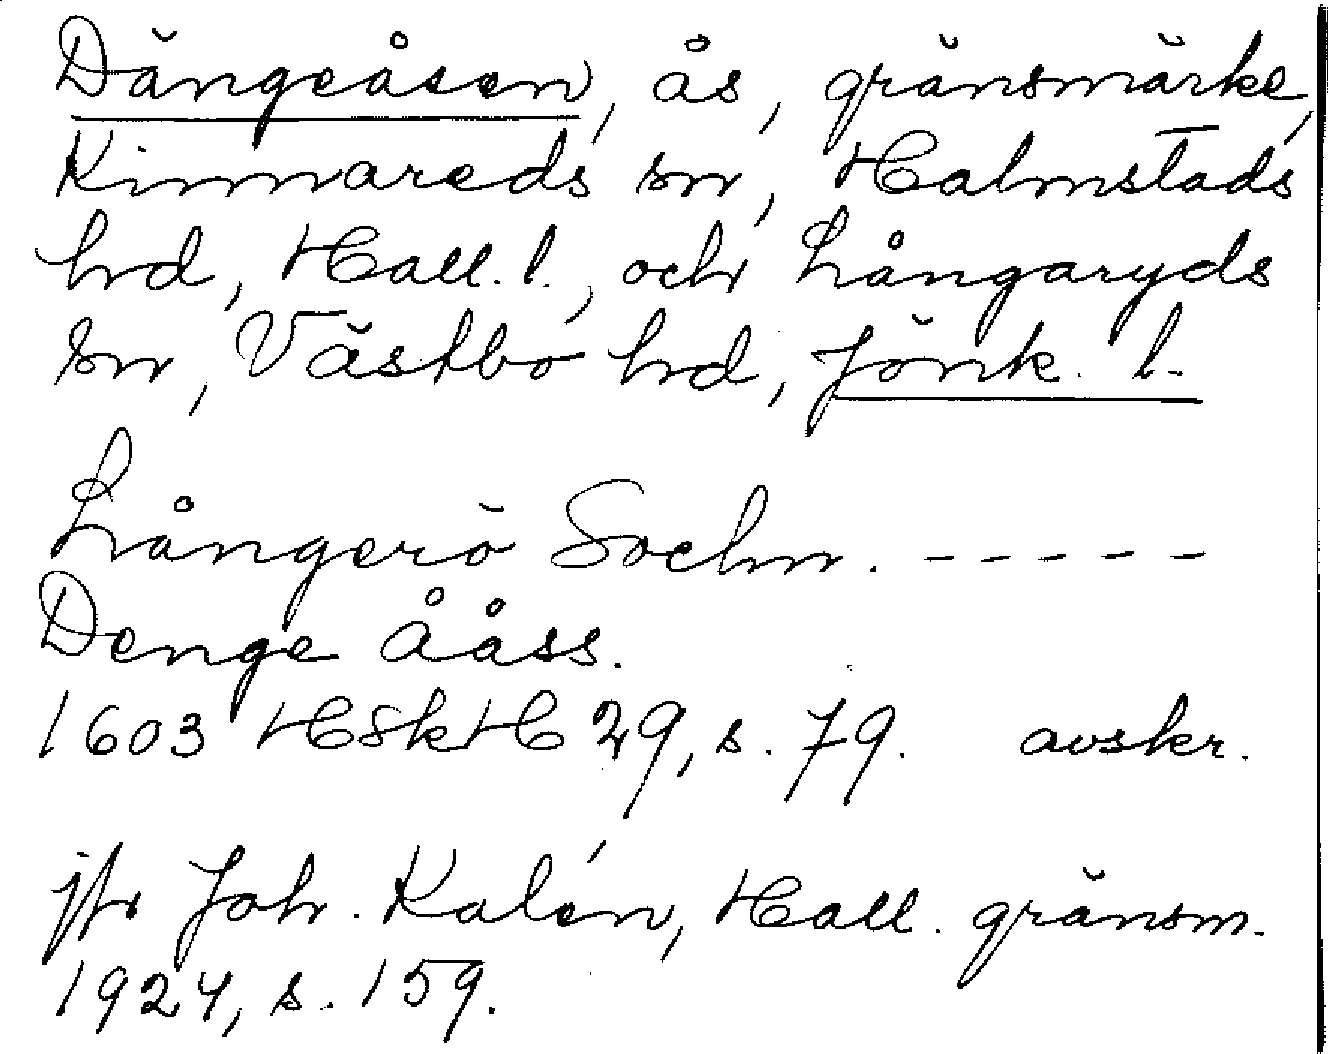 Dängeåsen, ås, gränsmärke,
Kinnareds sn, Halmstads
hrd, Hall. l., och Långaryds
sn, Västbo hrd, Jönk. l.
Långerö Sochn. - - - - -
Denge Ååss.
1603 HSkH 29, s. 79. avskr.
jfr Joh. Kalén, Hall. gränsm.
1924, s. 159.